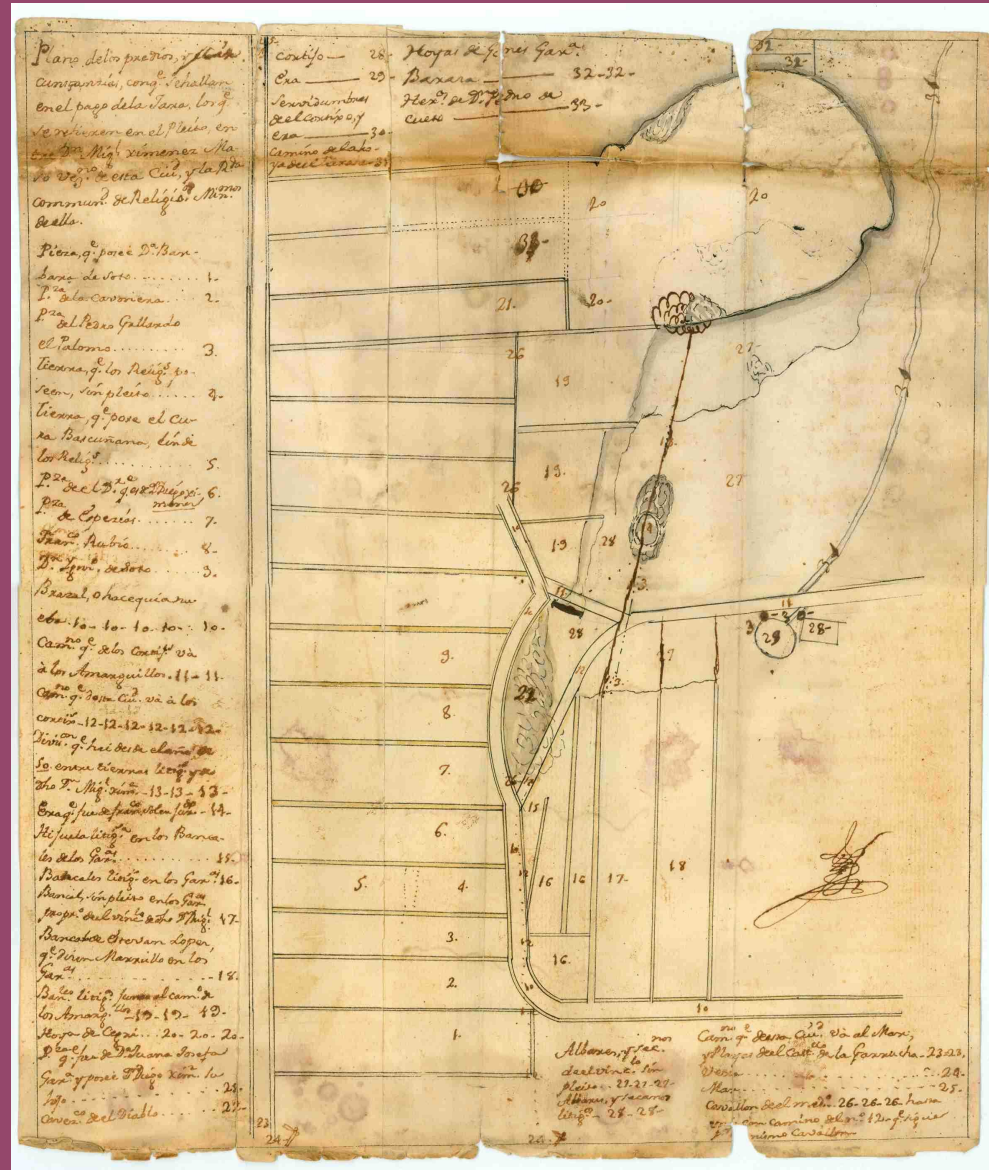 Plano delos predios, y Cir-
cunstancias, conq.e se hallan
en el pago dela Jara, los q.e
se refieren en el Pleito, en
tre D.n Mig.l ximenez Ma-
vez.no de esta Ciu.d, y la R.da
commun.d de Religio.s Min.mos
de ella.
Pieza, q.e poseé D.a Bar-
bara de Soto ........ 1.
P.za dela 2.
P.za del Pedro Gallardo
el Palomo ........ 3.
tierra, q.e los Relig.s po-
seen, sin pleito ..... 4.
Tierra, q.e posee el Cu-
ra Bascuñana, linde
los Relig.s ........ 5.
P.za de el D.r q.e es de D.n Diego xi- 6.
menez
P.za de 7.
Fran.co Rubio ........ 8.
D.n de Soto ..... 9.
Brazal, o hacequia nu
eba 10-10-10-10-: 10-
Cam.no q.e de los Cortij.s và
à los Amarguillos. 11-11.
Cam.no q.e desta Ciu.d và à los
cortijos-12-12-12-12-12-12-
Divis.on q.e hai desde el año de
50. entre tierras litig.s y de
dho D.n Mig.l xim.z -13-13-13-
Era q.e fue de - 14-
Hijuela litig.a en los Banca-
les delos Gar.as ........ 15.
Bancales litig.s en los Gar.as 16-
Bancal, sin pleito en los Gar.as
prop.o del vinc.o de dho D.n Mig.l 17-
Bancal de Estevan Lopez,
q.e dicen Marxillo en los
Gar.as ........ -18.
Ban.les litig.s junto al cam.o de
los Amarg.llos -19-19-19-
Hoya de Cepri... 20-20-20-
P.za q.e fue de D.a Juana Josefa
Gar.a y poseé D.n Diego Xim.z su
hijo ........ 21-
Cavez.o del Diablo ..... 22-
cortijo — 28-
Era — 29-
Servidumbres
del cortijo, y
era — 30-
Camino de la ho-
ya de
Hoyas de Gines Gar.a
Baxara — 32-32-
Her.s de D.n Pedro de
Cueto — 33-
32-
32-
20
20
33-
21.
20-
26
19
27-
13.
19.
27
26
10
19
28
14
13.
11
10
28
11
3
3
29
28-
9.
22
12
27
13.
8
7.
26
12
15
6.
10
12
5.
4.
16
16
17-
18
3.
12
16.
2.
10
1.
10
23
24
24
Albares, y sec.nos
del vinc.lo sin
pleito . 27-27-27-
Albares, y secanos
litig.s - 28-28-
Cam.no q.e desta Ciu.d và al Mar,
y Playas del Cast.llo de la Garrucha-23-23.
24-
Mar ........ 25-
Cavallon del m.º 26-26-26- hasta
con camino del n.º 12- q.e sigue
mismo Cavallon